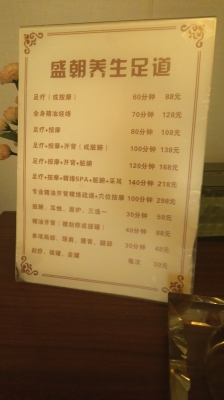 盛朝养生足道
足疗（或按摩） 60分钟 88元
全身精油经络 70分钟 128元
足疗+按摩 80分钟 108元
足疗+按摩+开背（或脑腩） 100分钟 138元
足疗+按摩+开背+脑腩 120分钟 168元
足疗+按摩+精油SPA+脑腩+采耳 140分钟 218元
专业精油开背精络疏通+穴位按摩 100分钟 298元
30分钟 58元
精油开背 40分钟 88元
30分钟
刮痧、拔罐、走罐 每次 30元